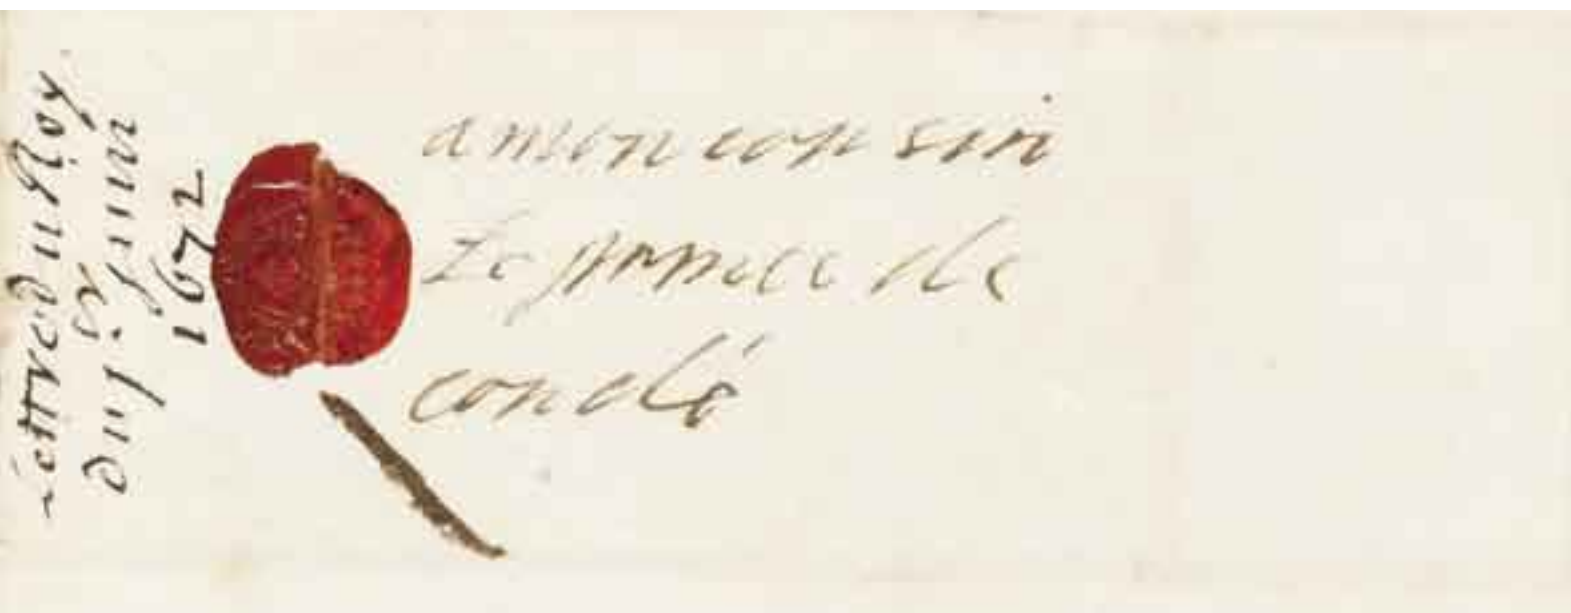 Lettre du Roy
juin
1672
a mon cousin
Le prince de
condé